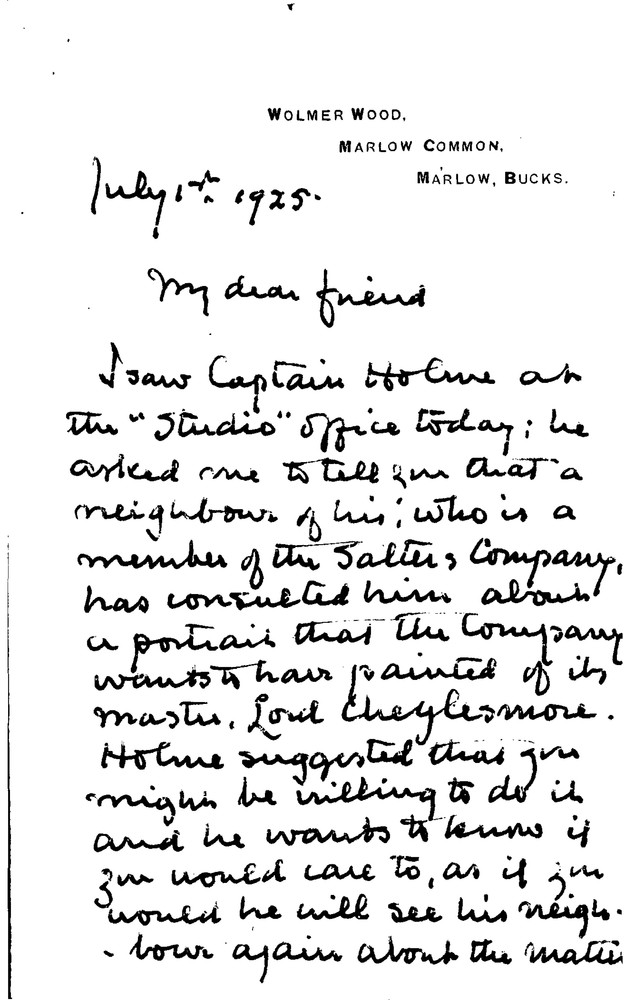 WOLMER WOOD,
MARLOW COMMON,
MARLOW, BUCKS.
July 1st. 1925.
My dear friend
I saw Captain Holme at
the "Studio" office today; he
asked me to tell you that a
neighbour of his, who is a
member of the Salters Company,
has consulted him about
a portrait that the Company
wants to have painted of its
master, Lord Cheylesmore.
Holme suggested that you
might be willing to do it
and he wants to know if
you would care to, as if you
would he will see his neigh-
-bour again about the matter